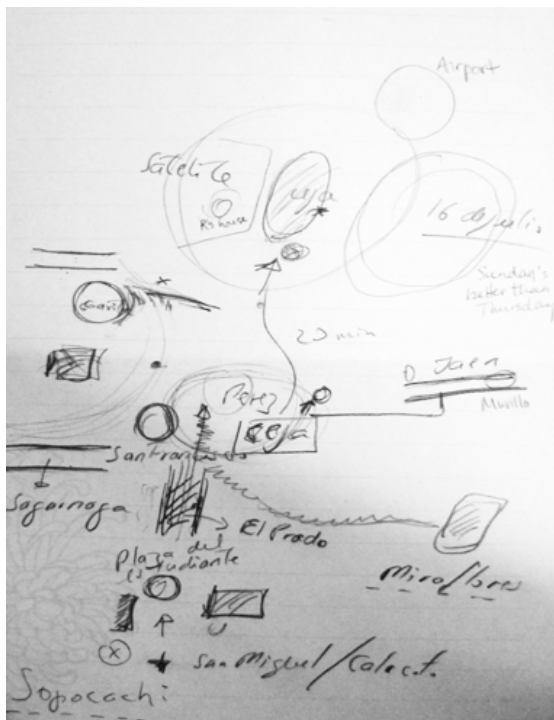 Airport
Satelite
Ceja
R's house
16 de julio
Sunday's
better than
Thursday
20 min
D Jaen
Perez
Murillo
Ceja
San Francisco
Sagarnaga
El Prado
Plaza del
estudiante
Miraflores
San Miguel/Calacot.
Sopocachi